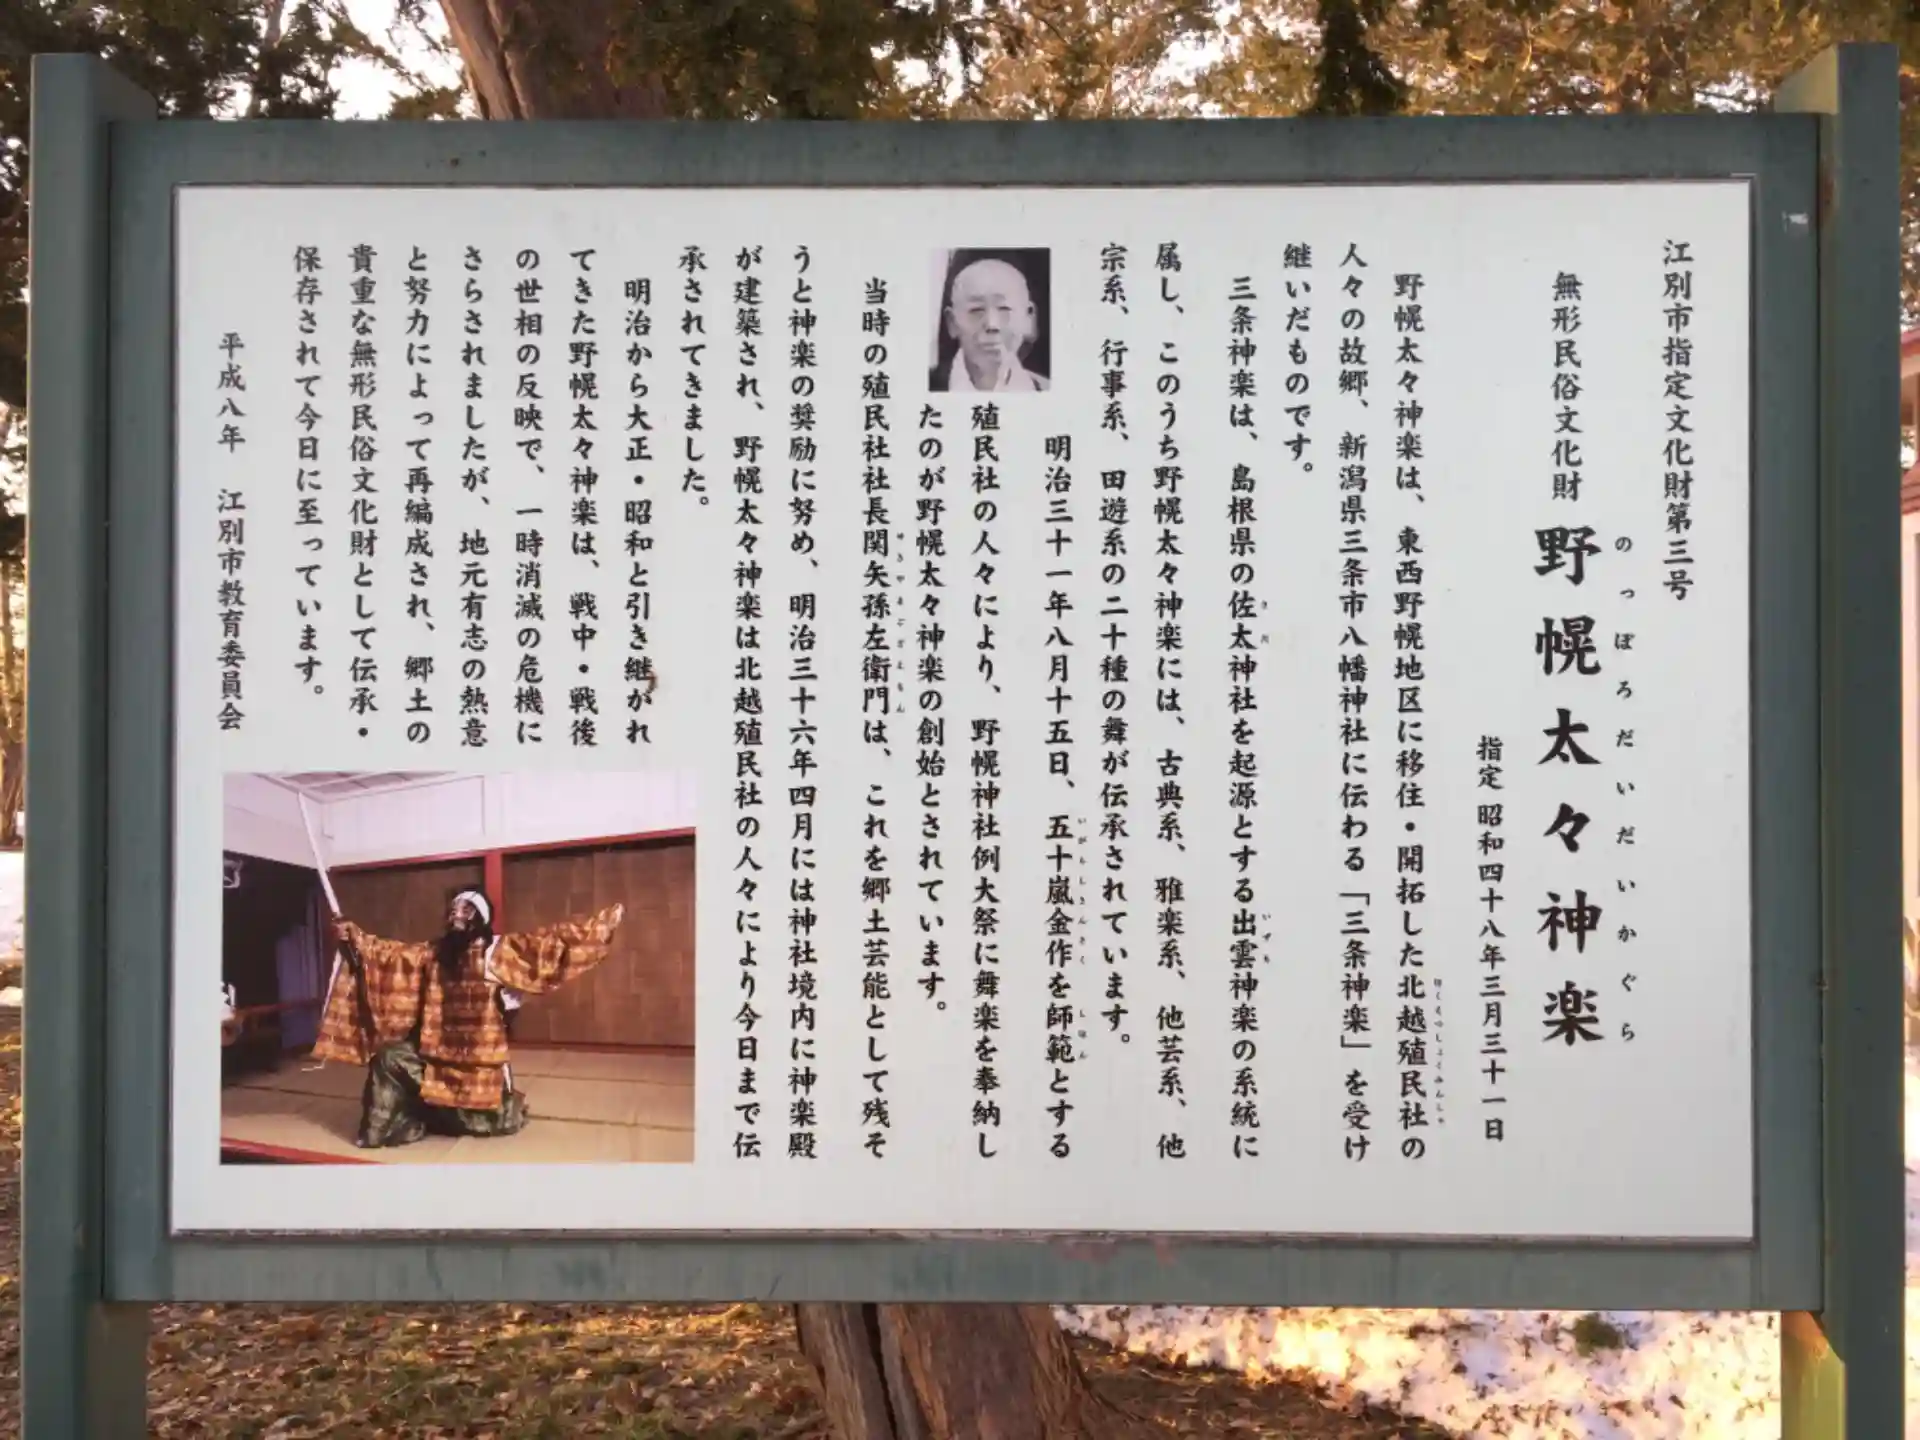 江別市指定文化財第三号
無形民俗文化財 野幌太々神楽
のっぽろだいだいかぐら
指定 昭和四十八年三月三十一日
野幌太々神楽は、東西野幌地区に移住・開拓した北越殖民社の
ほくえつしょくみんしゃ
人々の故郷、新潟県三条市八幡神社に伝わる「三条神楽」を受け
継いだものです。
三条神楽は、島根県の佐太神社を起源とする出雲神楽の系統に
さだ
いずも
属し、このうち野幌太々神楽には、古典系、雅楽系、他芸系、他
宗系、行事系、田遊系の二十種の舞が伝承されています。
明治三十一年八月十五日、五十嵐金作を師範とする
いがらしきんさく
しはん
殖民社の人々により、野幌神社例大祭に舞楽を奉納し
たのが野幌太々神楽の創始とされています。
当時の殖民社社長関矢孫左衛門は、これを郷土芸能として残そ
せきやまござえもん
うと神楽の奨励に努め、明治三十六年四月には神社境内に神楽殿
が建築され、野幌太々神楽は北越殖民社の人々により今日まで伝
承されてきました。
明治から大正・昭和と引き継がれ
てきた野幌太々神楽は、戦中・戦後
の世相の反映で、一時消滅の危機に
さらされましたが、地元有志の熱意
と努力によって再編成され、郷土の
貴重な無形民俗文化財として伝承・
保存されて今日に至っています。
平成八年 江別市教育委員会